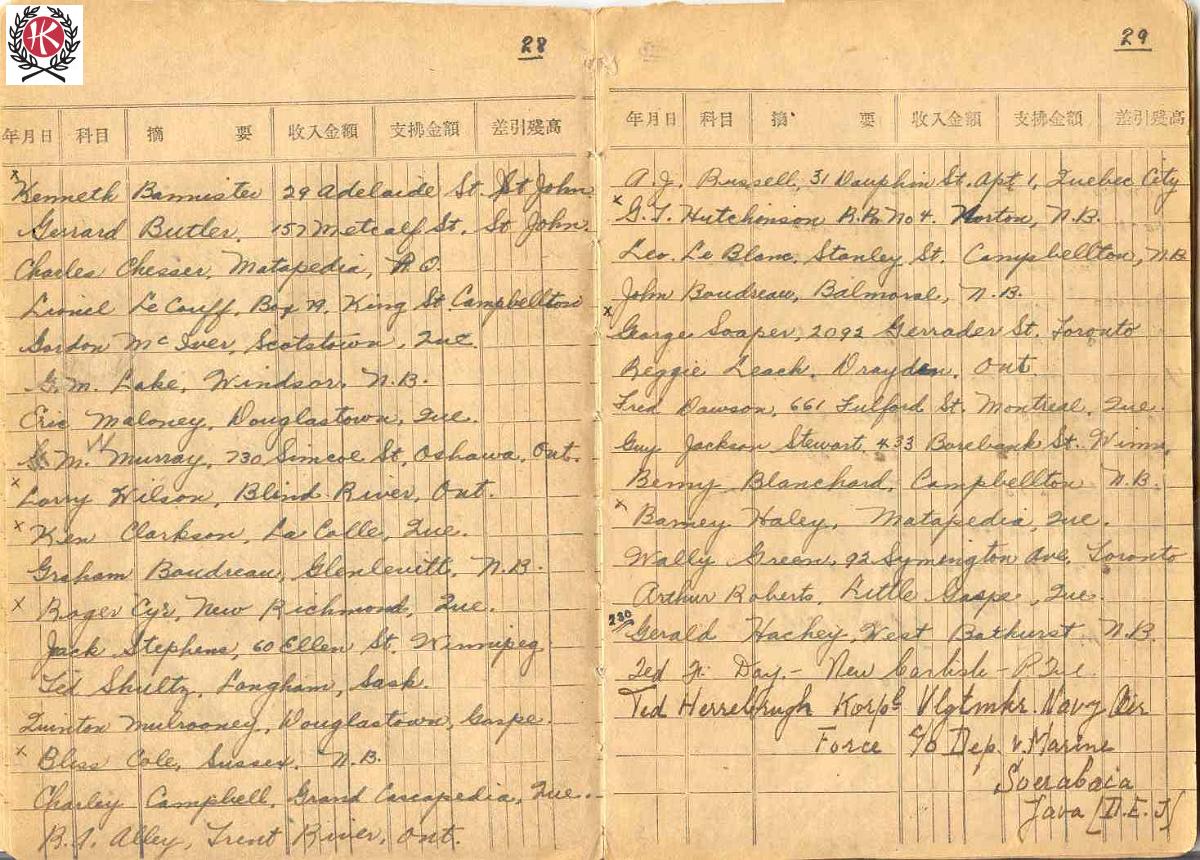 HK
28
年月日 科目 摘 要 收入金額 支拂金額 差引残高
x Kenneth Bannister 29 Adelaide St. St John
Gerrard Butler. 157 Metcalf St. St John.
Charles Chesser, Matapedia, P.Q.
Lionel LeCouff, Box 79. King St. Campbellton
Gordon McIver, Scotstown, Que.
G. M. Lake, Windsor. N.B.
Eric Maloney, Douglastown, Que.
M. W Murray, 730 Simcoe St, Oshawa, Ont.
x Larry Wilson, Blind River, Ont.
x Ken Clarkson, La Colle, Que.
Graham Boudreau, Glenlevitt, N.B.
x Roger Cyr, New Richmond, Que.
Jack Stephens, 60 Ellen St. Winnipeg
Ted Shultz, Langham, Sask.
Quinton Mulrooney, Douglastown, Gaspe.
x Bliss Cole, Sussex. N.B.
Charley Campbell, Grand Cascapedia, Que.
B.A. Alley, Trent River, Ont.
29
年月日 科目 摘 要 收入金額 支拂金額 差引残高
A.J. Russell, 31 Dauphin St. Apt 1, Quebec City
x G.T. Hutchinson R.R. No 4. Norton, N.B.
Leo. Le Blanc. Stanley St. Campbellton, N.B.
John Boudreau, Balmoral, N.B.
x George Soaper, 2092 Gerrader St. Toronto
Reggie Leach. Drayden, Ont.
Fred Dawson, 661 Fulford St. Montreal, Que.
Guy Jackson Stewart. 433 Borebank St. Winn.
Benny Blanchard, Campbellton N.B.
x Barney Haley, Matapedia, Que.
Wally Green, 92 Symington Ave, Toronto
Arthur Roberts, Little Gaspe, Que.
230 Gerald Hachey, West Bathurst N.B.
Ted F. Day, - New Carlisle - P. Que
Ted Herrebrugh Korpl Vlgtmkr. Navy Air
Force c/o Dep. v. Marine
Soerabaia
Java [D.E.I]